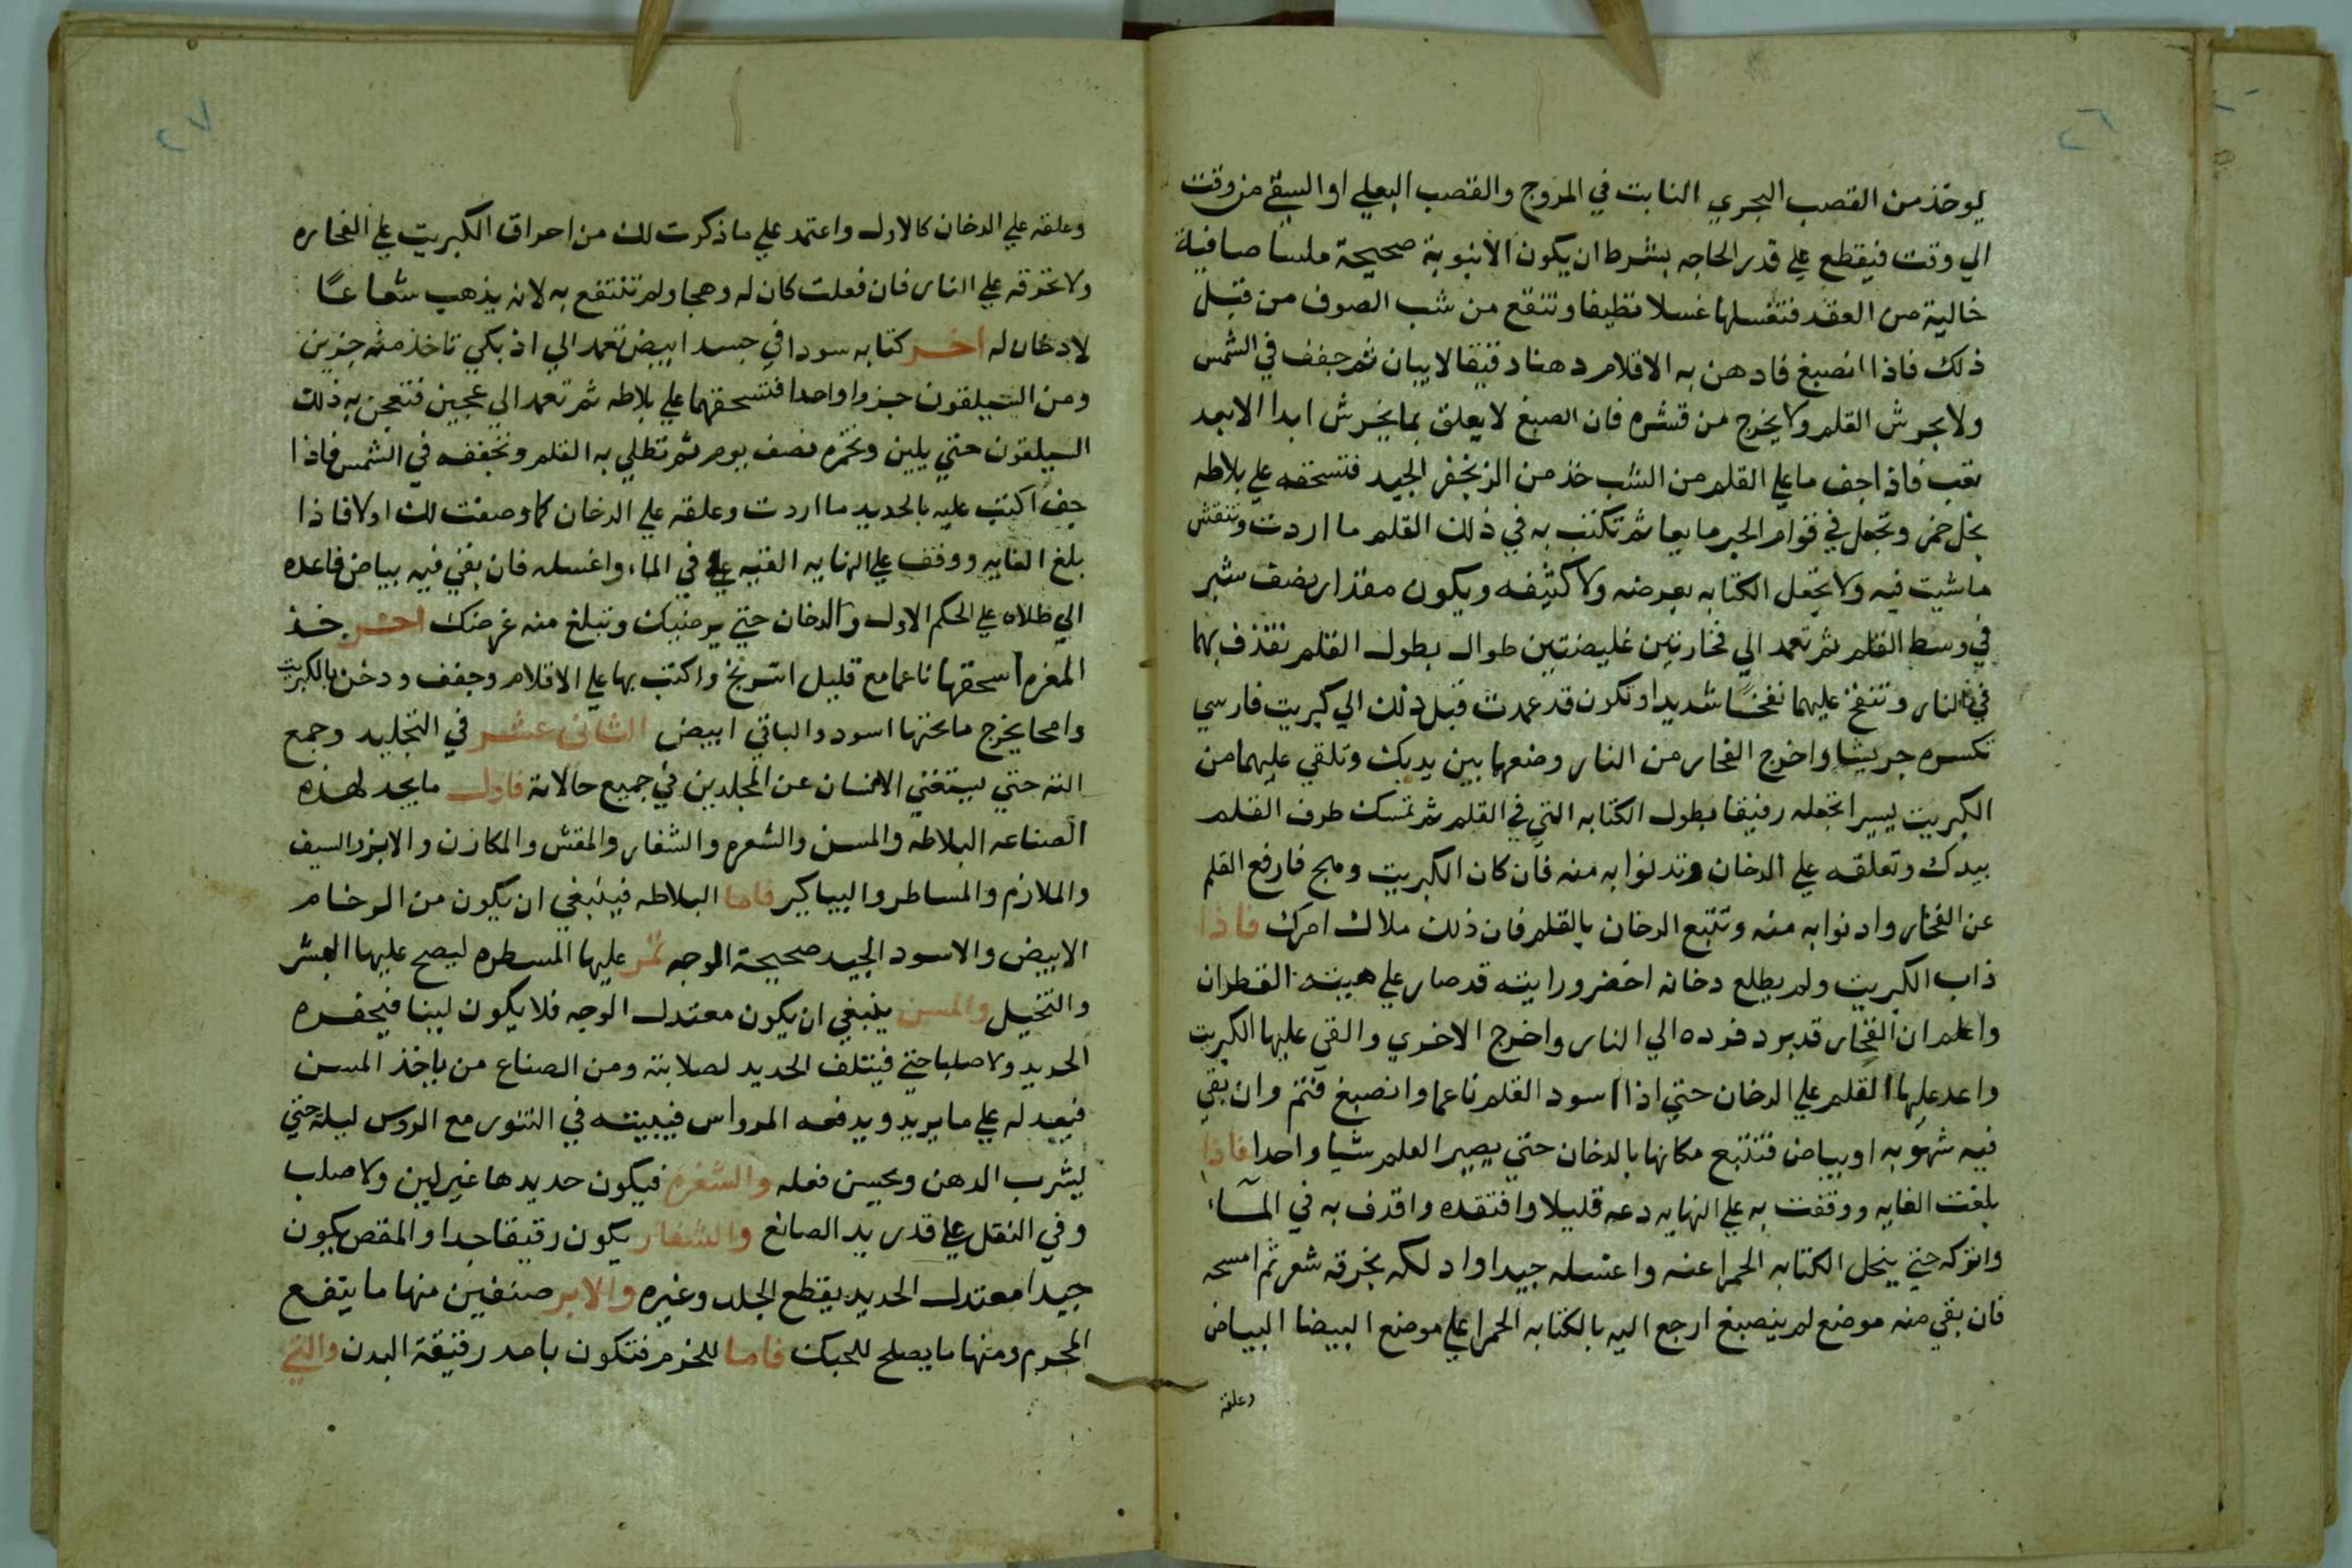 ٢٦
يوخذ من القصب البحري النابت في المروج والقصب البعلي او السقي من وقت
الي وقت فيقطع علي قدر الحاجه بشرط ان يكون الانبوبة صحيحة ملسا صافية
خالية من العقد فتغسلها غسلا نظيفا وتنقع من شب الصوف من قبل
ذلك فاذا انصبغ فادهن به الاقلام دهنا دقيقا لا يبان ثم جفف في الشمس
ولا يجرش القلم ولا يخرج من قشره فان الصبغ لا يعلق بما يخرش ابدا الا بعد
تعب فاذا جف ما علي القلم من الشب خذ من الزنجفر الجيد فتسحقه علي بلاطه
بخل خمر وتجعل في قوام الحبر مايعا ثم تكتب به في ذلك القلم ما اردت وتنقش
ما شيت فيه ولا تجعل الكتابه بعرضه ولا كثيفه ويكون مقدار نصف شبر
في وسط القلم ثم تعمد الي فخارتين غليضتين طوال بطول القلم تقذف بهما
في النار وتنفخ عليهما نفخًا شديدا وتكون قد عمدت قبل ذلك الي كبريت فارسي
تكسره جريشا واخرج الفخار من النار وضعها بين يديك وتلقي عليهما من
الكبريت يسيرا تجعله رفيقا بطول الكتابه التي في القلم ثم تمسك طرف القلم
بيدك وتعلقه علي الدخان وتدنوا به منه فان كان الكبريت وهج فارفع القلم
عن الفخار وادنوا به منه وتتبع الدخان بالقلم فان ذلك ملاك امرك فاذا
ذاب الكبريت ولم يطلع دخانه اخضر ورايته قد صار علي هيية القطران
واعلم ان الفخار قد برد فرده الي النار واخرج الاخري والقي عليها الكبريت
واعد عليها القلم علي الدخان حتي اذا اسود القلم ناعما وانصبغ فتم وان بقي
فيه شهوبه او بياض فتتبع مكانها بالدخان حتي يصير القلم شيا واحدا فاذا
بلغت الغايه ووقفت به علي النهايه دعه قليلا وافتقده واقذف به في المآء
واتركه حتي ينحل الكتابه الحمرا عنه واغسله جيدا وادلكه بخرقه شعر ثم امسحه
فان بقي منه موضع لم ينصبغ ارجع اليه بالكتابه الحمرا علي موضع البيضا البياض
وعلقه
٢٧
وعلقه علي الدخان كالاول واعتمد علي ما ذكرت لك من احراق الكبريت علي الفخاره
ولا تحرقه علي النار فان فعلت كان له وهجا ولم تنتفع به لانه يذهب شعاعًا
لا دخان له اخر كتابه سودا في جسد ابيض تعمد الي اذ بكي تاخذ منه جزين
ومن السيلقون جزوا واحدا فتسحقهما علي بلاطه ثم تعمد الي عجين فتعجن به ذلك
السيلقون حتي يلين وتخمره نصف يوم ثم تطلي به القلم وتجففه في الشمس فاذا
جف اكتب عليه بالحديد ما اردت وعلقه علي الدخان كما وصفت لك اولا فاذا
بلغ الغايه ووقف علي النهايه القيه في الماء واغسله فان بقي فيه بياض فاعده
الي طلاه علي الحكم الاول والدخان حتي يرضيك وتبلغ منه غرضك اخر خذ
المغره اسحقها ناعما مع قليل اسرنج واكتب بها علي الاقلام وجفف ودخن بالكبريت
وامحا يخرج ما تحتها اسود والباقي ابيض الثاني عشر في التجليد وجمع
الته حتي يستغني الانسان عن المجلدين في جميع حالاته فاول ما يجد لهذه
الصناعه البلاطه والمسن والشعره والشفار والمقش والمكازن والابر والسيف
والملازم والمساطر والبياكير فاما البلاطه فينبغي ان يكون من الرخام
الابيض والاسود الجيد صحيحة الوجه تمر عليها المسطره ليصح عليها البشر
والتخيل والمسن ينبغي ان يكون معتدل الوجه فلا يكون لينا فيحفره
الحديد ولا صلبا حتي فيتلف الحديد لصلابته ومن الصناع من ياخذ المسن
فيعدله علي ما يريد ويدفعه المرواس فيبيته في التنور مع الروس ليلة حتي
يشرب الدهن ويحسن فعله والشفره فيكون حديدها غير لين ولا صلب
وفي الثقل علي قدر يد الصانع والشفار يكون رقيقا جدا والمقص يكون
جيدا معتدل الحديد يقطع الجلد وغيره والابر صنفين منها ما يتفع
المجرم ومنها ما يصلح للحبك فاما للخزم فتكون باحد رقيقة البدن والتي